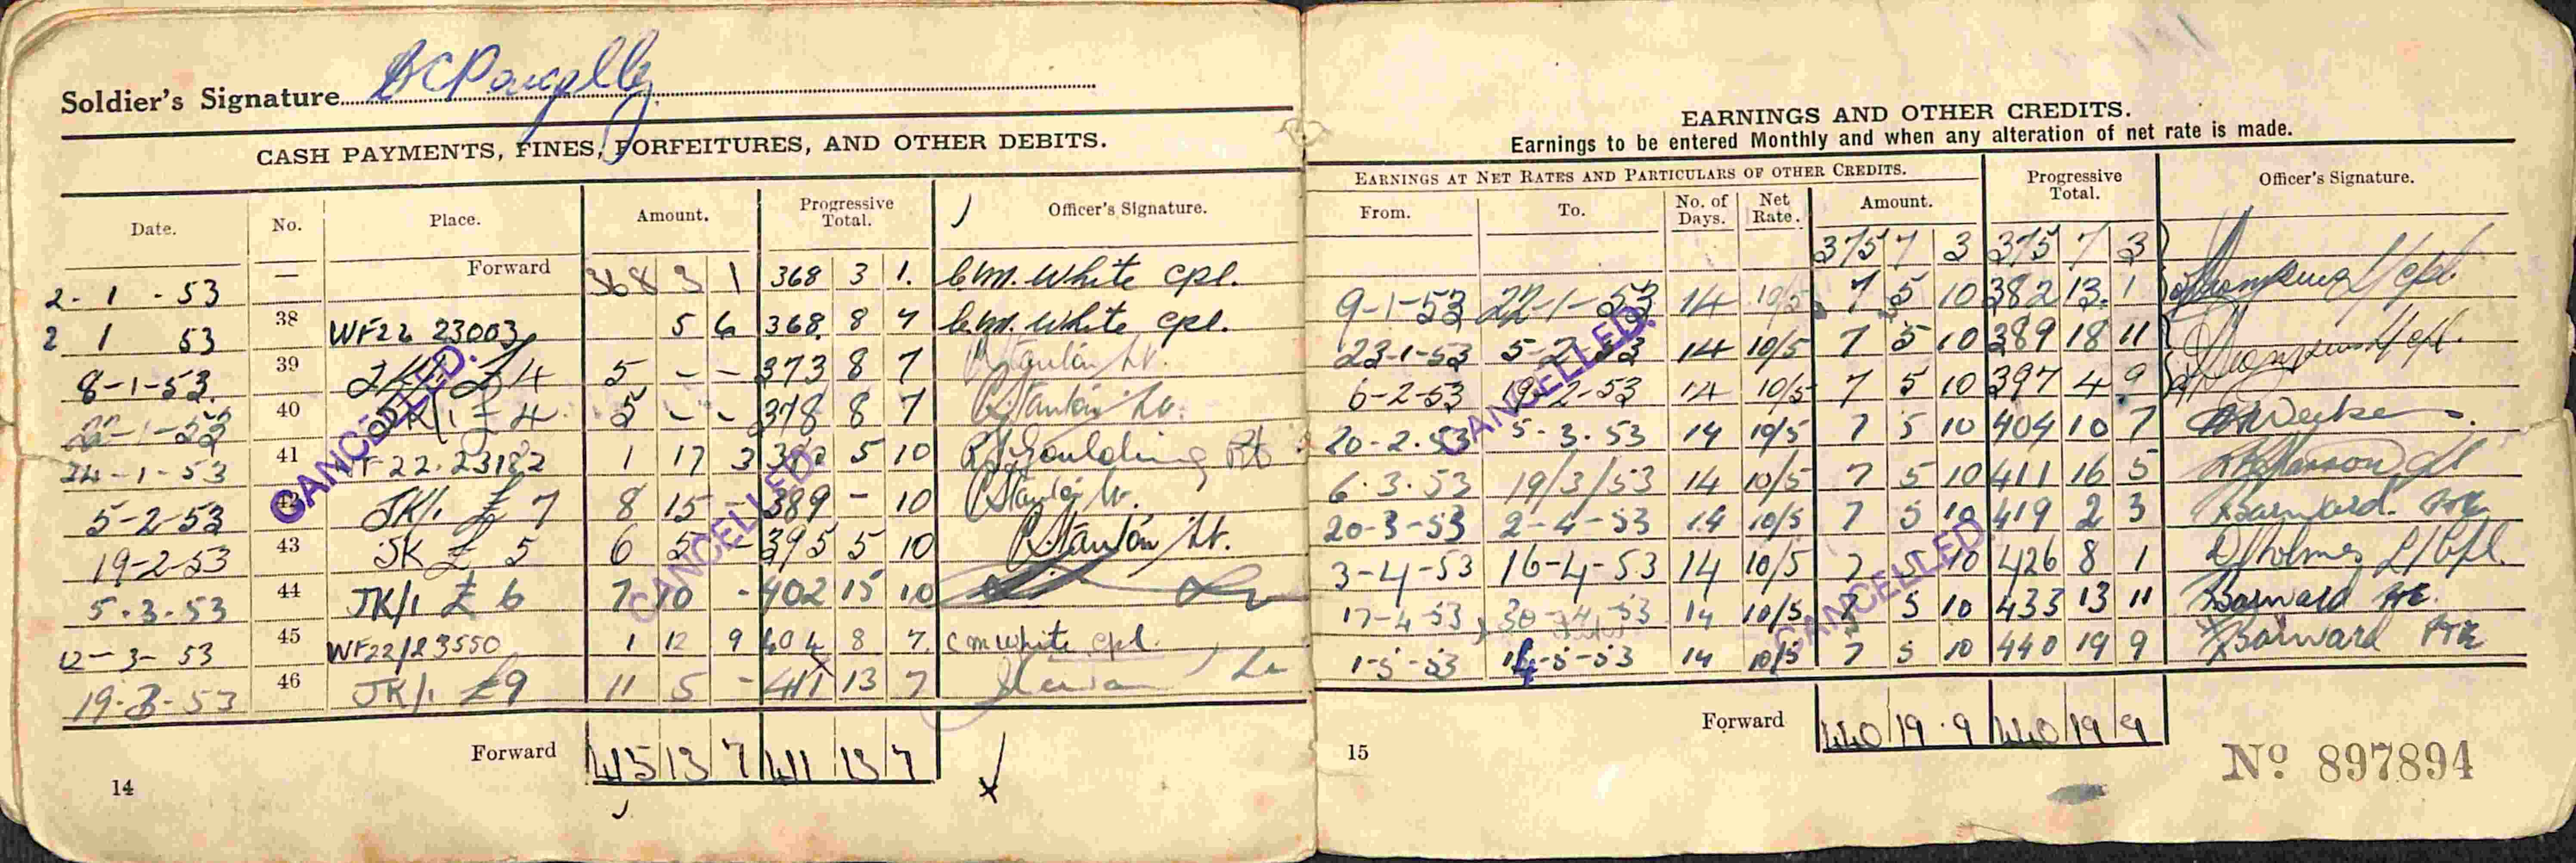 Soldier's Signature
CASH PAYMENTS, FINES, FORFEITURES, AND OTHER DEBITS.
Date. No. Place. Amount. Progressive Total. Officer's Signature.
2-1-53 — Forward 368 3 1 368 3 1. C.M. White Cpl.
2 1 53 38 WF22 23003 5 6 368. 8 7 C.M. White Cpl.
8-1-53. 39 £4 5 - - 373 8 7 Stanton Lt.
22-1-53 40 JK/1 £4 5 - - 378 8 7 Stanton Lt.
24-1-53 41 WF22.23182 1 17 3 5 10 Goulding
5-2-53 42 JK/1 £7 8 15 - 389 - 10 Stanton Lt.
19-2-53 43 JK £5 6 5 - 395 5 10 Stanton Lt.
5.3.53 44 JK/1 £6 7 10 - 402 15 10
12-3-53 45 WF22/23550 1 12 9 404 8 7. C M White Cpl.
19-3-53 46 JK/1 £9 11 5 - 411 13 7
Forward 13 7 411 13 7
14
CANCELLED.
CANCELLED.
EARNINGS AND OTHER CREDITS.
Earnings to be entered Monthly and when any alteration of net rate is made.
EARNINGS AT NET RATES AND PARTICULARS OF OTHER CREDITS.
From. To. No. of Days. Net Rate. Amount. Progressive Total. Officer's Signature.
375 7 3 375 7 3
9-1-53 22-1-53 14 10/5 7 5 10 382 13. 1 L/Cpl
23-1-53 5-2-53 14 10/5 7 5 10 389 18 11 L/Cpl.
6-2-53 19-2-53 14 10/5 7 5 10 397 4 9
20-2.53 5-3.53 14 10/5 7 5 10 404 10 7
6.3.53 19/3/53 14 10/5 7 5 10 411 16 5 Cpl
20-3-53 2-4-53 14 10/5 7 5 10 419 2 3 Barnard. Pte
3-4-53 16-4-53 14 10/5 7 5 10 426 8 1 Holmes L/Cpl.
17-4-53 30-4-53 14 10/5 7 5 10 433 13 11 Barnard Pte.
1-5-53 14-5-53 14 10/5 7 5 10 440 19 9 Barnard Pte
Forward 440 19.9 440 19 9
15
CANCELLED.
CANCELLED.
No 897894